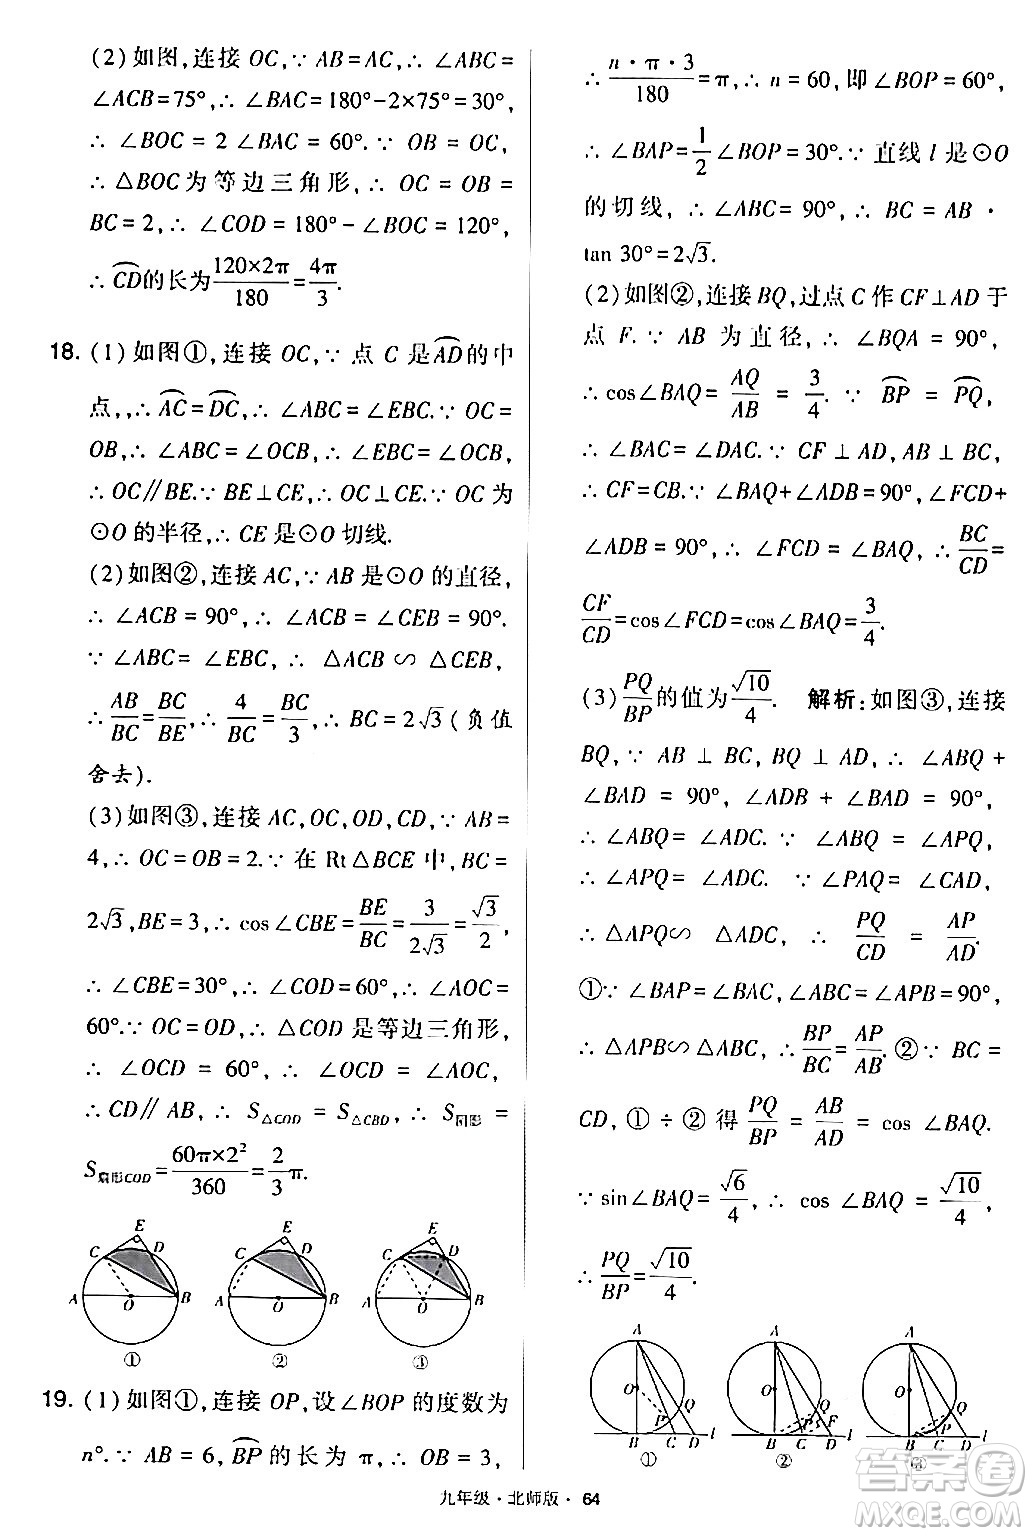 (2)如图,连接 OC,∵ AB=AC,∴ ∠ABC=
∠ACB=75°,∴ ∠BAC=180°-2×75°=30°,
∴ ∠BOC = 2 ∠BAC = 60°. ∵ OB = OC,
∴ △BOC 为等边三角形,∴ OC = OB =
BC=2,∴ ∠COD = 180°-∠BOC = 120°,
∴ $\overset{\frown}{CD}$的长为$\frac{120×2π}{180}=\frac{4π}{3}$.
18. (1)如图①,连接 OC,∵ 点 C 是$\overset{\frown}{AD}$的中
点,,∴ $\overset{\frown}{AC}=\overset{\frown}{DC}$,∴ ∠ABC=∠EBC.∵ OC=
OB,∴ ∠ABC = ∠OCB,∴ ∠EBC = ∠OCB,
∴ OC∥BE.∵ BE⊥CE,∴ OC⊥CE.∵ OC 为
⊙O 的半径,∴ CE 是⊙O 切线.
(2)如图②,连接 AC,∵ AB 是⊙O 的直径,
∴ ∠ACB = 90°,∴ ∠ACB = ∠CEB = 90°.
∵ ∠ABC = ∠EBC, ∴ △ACB ∽ △CEB,
∴ $\frac{AB}{BC}=\frac{BC}{BE}$,∴ $\frac{4}{BC}=\frac{BC}{3}$,∴ BC=2$\sqrt{3}$(负值
舍去).
(3)如图③,连接 AC,OC,OD,CD,∵ AB=
4,∴ OC=OB=2.∵ 在 Rt△BCE 中,BC=
2$\sqrt{3}$,BE=3,∴ cos∠CBE=$\frac{BE}{BC}=\frac{3}{2\sqrt{3}}=\frac{\sqrt{3}}{2}$,
∴ ∠CBE=30°,∴ ∠COD=60°,∴ ∠AOC=
60°.∵ OC=OD,∴ △COD 是等边三角形,
∴ ∠OCD = 60°,∴ ∠OCD = ∠AOC,
∴ CD∥AB,∴ S△COD = S△CBD,∴ S阴影 =
S扇形COD=$\frac{60π×2^2}{360}=\frac{2}{3}$π.
E E E
C D C D C D
A O B A O B A O B
① ② ③
19. (1)如图①,连接 OP,设∠BOP 的度数为
n°.∵ AB = 6, $\overset{\frown}{BP}$ 的长为 π,∴ OB = 3,
∴ $\frac{n·π·3}{180}$=π,∴ n=60,即∠BOP=60°,
∴ ∠BAP=$\frac{1}{2}$∠BOP=30°.∵ 直线 l 是⊙O
的切线,∴ ∠ABC = 90°,∴ BC = AB ·
tan 30°=2$\sqrt{3}$.
(2)如图②,连接BQ,过点 C 作 CF⊥AD 于
点 F.∵ AB 为直径,∴ ∠BQA = 90°,
∴ cos∠BAQ=$\frac{AQ}{AB}$ = $\frac{3}{4}$. ∵ $\overset{\frown}{BP}$ = $\overset{\frown}{PQ}$,
∴ ∠BAC=∠DAC.∵ CF⊥AD,AB⊥BC,
∴ CF=CB.∵ ∠BAQ+∠ADB=90°,∠FCD+
∠ADB = 90°,∴ ∠FCD = ∠BAQ,∴ $\frac{BC}{CD}$=
$\frac{CF}{CD}$=cos∠FCD=cos∠BAQ=$\frac{3}{4}$.
(3)$\frac{PQ}{BP}$的值为$\frac{\sqrt{10}}{4}$. 解析:如图③,连接
BQ,∵ AB ⊥ BC,BQ ⊥ AD,∴ ∠ABQ +
∠BAD = 90°, ∠ADB + ∠BAD = 90°,
∴ ∠ABQ = ∠ADC. ∵ ∠ABQ = ∠APQ,
∴ ∠APQ = ∠ADC. ∵ ∠PAQ = ∠CAD,
∴ △APQ∽ △ADC, ∴ $\frac{PQ}{CD}$ = $\frac{AP}{AD}$.
①∵ ∠BAP=∠BAC,∠ABC=∠APB=90°,
∴ △APB∽△ABC,∴ $\frac{BP}{BC}=\frac{AP}{AB}$.②∵ BC=
CD,①÷②得 $\frac{PQ}{BP}$ = $\frac{AB}{AD}$ = cos ∠BAQ.
∵ sin∠BAQ=$\frac{\sqrt{6}}{4}$,∴ cos ∠BAQ = $\frac{\sqrt{10}}{4}$,
∴ $\frac{PQ}{BP}=\frac{\sqrt{10}}{4}$.
A A A
O O O
P Q Q F
B C D l B C D l B C D l
① ② ③
答案圈
MXQE.COM
九年级·北师版·64